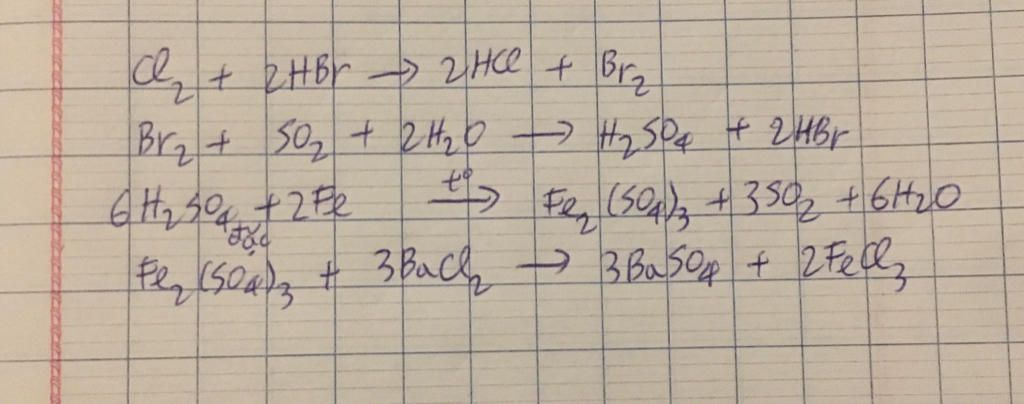 Cl₂ + 2HBr → 2HCl + Br₂
Br₂ + SO₂ + 2H₂O → H₂SO₄ + 2HBr
6H₂SO₄ đặc + 2Fe t° → Fe₂(SO₄)₃ + 3SO₂ + 6H₂O
Fe₂(SO₄)₃ + 3BaCl₂ → 3BaSO₄ + 2FeCl₃